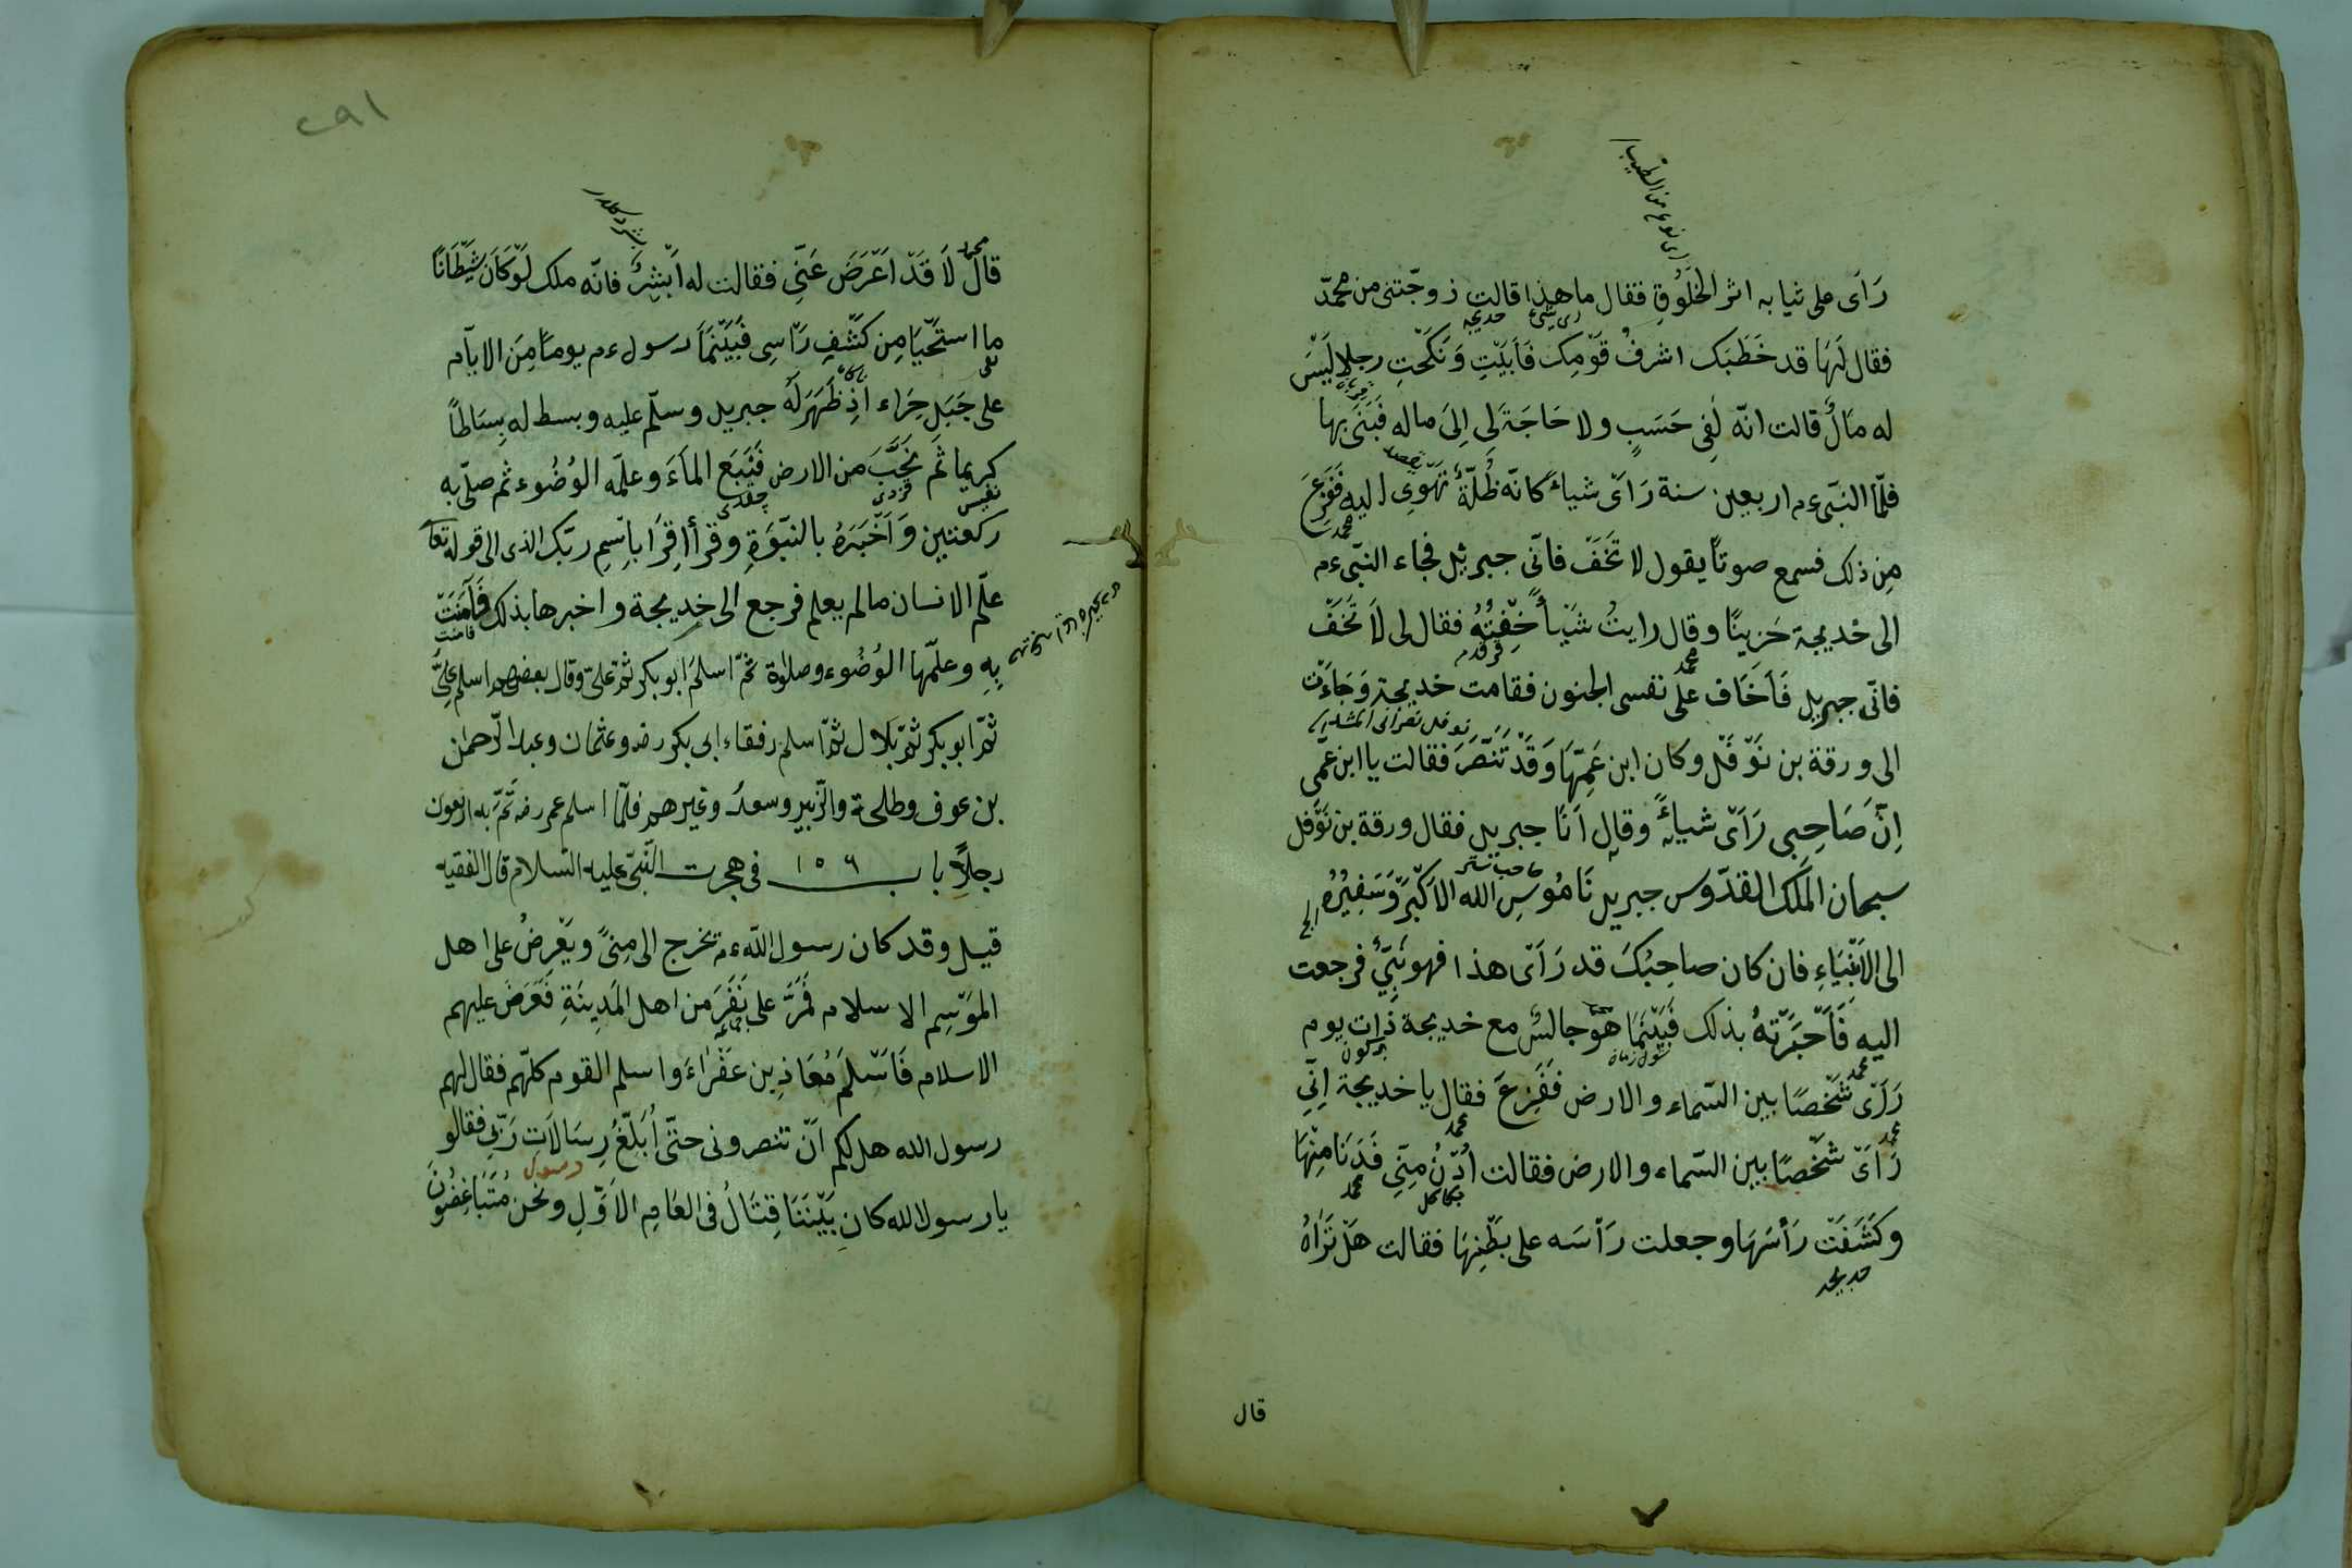 رَاَى على ثيابه اثر الخَلُوقِ فقال ما هذا قالت زوجّتنى من محمدّ
فقال لَهَا قد خَطَبَك اشرفُ قَوْمِك فَاَبَيْتِ وَنَكَحْتِ رجلا لَيْسَ
له مَالٌ قالت انّه لَفِى حَسَبٍ ولا حَاجَةَ لِى اِلَى ماله فَبَنَى بها
فلمّا النبّى ءم اربعين سنة رَاَىْ شياءً كانّه ظُلّةٌ تَهْوِى اليه فَفَزِعَ
مِن ذلك فسمع صوتاً يقول لا تَخَفْ فانّى جبرئيل فجاء النبّى ءم
الى خديجة حَزِينًا وقال رايتُ شَيْأً خِفْتُهُ فقال لى لاَ تَخَفْ
فانّى جبريل فَاَخَاف على نفسى الجنون فقامت خديجة وَجَاءَت
الى ورقة بن نَوْفَل وكان ابن عَمِّهَا وَقَدْ تَنَصَّرَ فقالت يا ابن عمّى
اِنّ صَاحِبِى رَاَىْ شياءً وقال اَنَا جبريل فقال ورقة بن نَوْفل
سبحان المَلَك القدّوس جبريل نَامُوسِ الله الاَكْبَر وَسَفِيرُه
الى الاَنْبِيَاءِ فان كان صاحِبُكَ قد رَاَى هذا فهو نَبِىٌّ فرجعت
اليه فَاَخْبَرَتْهُ بذلك فَبَيْنَمَا هُوَ جالسٌ مع خديجة ذات يوم
رَاَىْ شَخْصًا بين السّماء والارض فَفَزِعَ فقال يا خديجة اِنِّى
رَاَىْ شَخْصًا بين السّماء والارض فقالت اُدْنُ مِنِّى فَدَنَا مِنْهَا
وكَشَفَتْ رَأْسَهَا وجعلت رَأْسَه على بَطْنِهَا فقالت هَلْ تَرَاهُ
قال
٢٩١
قال لَا قَدْ اَعْرَضَ عَنِّى فقالت له اَبْشِرْ فانّه ملك لَوْ كَانَ شَيْطَانًا
ما استَحْيَا مِن كَشْفِ رَاْسِى فَبَيْنَمَا رسول ءم يوماً مِنَ الايآم
على جَبَلِ حِرَاء اِذْ ظَهَرَ لَه جبريل وسلّم عليه وبسط له بِسَاطًا
كريما ثم نَجَبَ من الارض فَنَبَعَ المآءَ وعلمّه الوُضُوء ثم صلّى به
ركعتين وَاَخْبَرَهُ بالنّبوّةِ وقرأ اِقْرَا بِاسْمِ ربّك الذى الى قوله تعا
علّم الانسان مالم يعلم فرجع الى خديجة واخبرها بذلك فَآمَنَتْ
بِهِ وعلّمها الوُضُوء وصلاوة ثمّ اسلمَ ابو بكر ثمّ على وقال بعضهم اسلم علىّ
ثمّ ابو بكر ثمّ بَلال ثمّ اسلم رفقاء ابى بكر رضه وعثمان وعبد الرّحمن
بن عوف وطلحة والزّبير وسعد وغيرهم فلمّا اسلم عمر رضه تمّ به اربعون
رجلاً باب ١٥٦ فى هجرت النّبىّ عليه السّلام قال الفقيه
قيل وقد كان رسول الله ءم يخرج الى مِنىً ويَعْرِضُ على اهل
المَوْسِم الاسلام فَمَرَّ على نَفَرَ من اهل المَدِينَةِ فَعَرَضَ عليهم
الاسلام فَاَسْلَمَ مُعَاذِ بن عَفْرَاءَ واسلم القوم كلّهم فقال لهم
رسول الله هل لكم اَنْ تنصرونى حتّى اُبَلِّغُ رِسَالَاتِ رَبِّى فقالو
يا رسول الله كان بَيْنَنَا قِتَالٌ فى العَامِ الاَوَّلِ ونحن مُتَبَاغِضُونَ